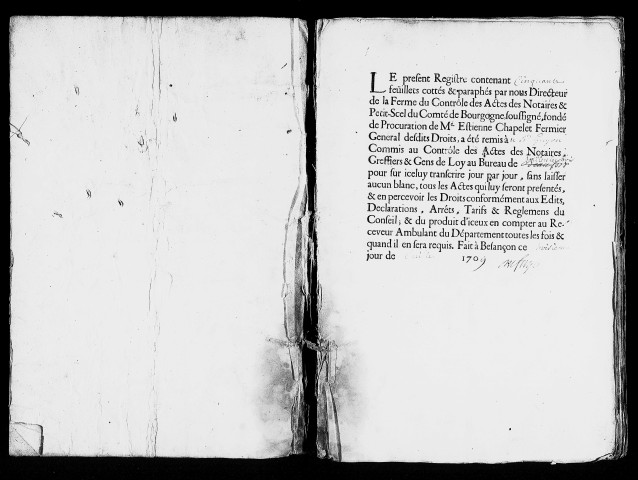 LE present Registre contenant Cinquante
feuillets cottés & paraphés par nous Directeur
de la Ferme du Contrôle des Actes des Notaires &
Petit-Scel du Comté de Bourgogne, soussigné, fondé
de Procuration de Me. Estienne Chapelet Fermier
General desdits Droits, a été remis à
Commis au Contrôle des Actes des Notaires,
Greffiers & Gens de Loy au Bureau de
pour sur iceluy transcrire jour par jour, sans laisser
aucun blanc, tous les Actes qui luy seront presentés,
& en percevoir les Droits conformément aux Edits,
Declarations, Arrêts, Tarifs & Reglemens du
Conseil; & du produit d'iceux en compter au Re-
ceveur Ambulant du Département toutes les fois &
quand il en sera requis. Fait à Besançon ce
jour de 1709